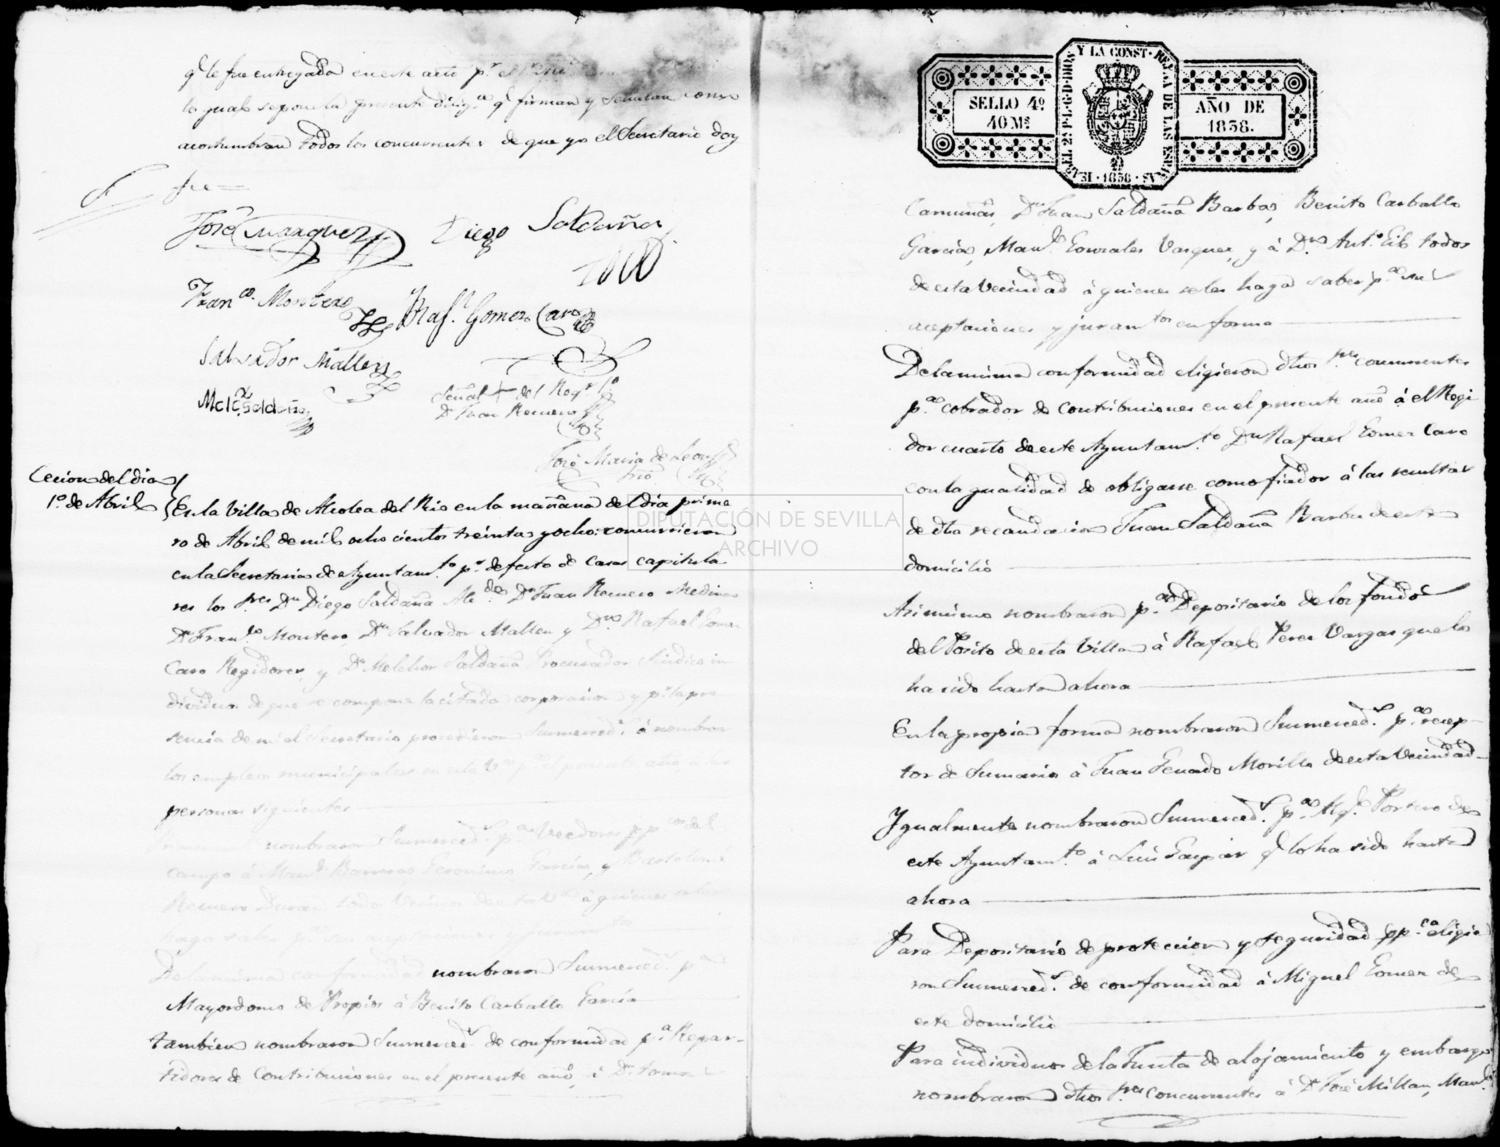 q.e le fue entregada en este acto p.r el
lo qual se pone la presente dilig.a q.e firman y señalan como
acostumbran todos los concurrentes de que yo el Secretario doy
fee=
José Marquez Diego Saldaña
Fran.co Montero Raf.l Gomez Caro
Salvador Mallen
Señal + del Reg.r
D.n Juan Romero
Mel.r Saldaña
José Maria de Leon
Srio
Cecion del dia
1.o de Abril
En la Villa de Alcolea del Rio en la mañana del dia prime
ro de Abril de mil ocho cientos treinta y ocho: concurrieron
en la Secretaria de Ayuntam.to p.r defecto de Casas capitula
res los S.res D.n Diego Saldaña Alc.de D.n Juan Romero Medina
D.n Fran.co Montero, D.n Salvador Mallen y D.n Rafael Gomez
Caro Regidores, y D.n Melchor Saldaña Procurador Sindico in
dividuos de que se compone la citada corporacion y p.r la pre
sencia de mi el Secretario procedieron Sumerced.s á nombrar
los empleos municipales en esta V.a p.a el presente año, á las
personas siguientes
nombraron Sumerced.s p.a Veedores pp.cos del
campo á Man.l Barreras, Geronimo Garcia, y Bartolome
Romero Duran todos Vecinos de esta V.a á quienes se les
haga saber p.a su aceptaciones y juram.to
De la misma conformidad nombraron Sumerced.s p.a
Mayordomo de Propios á Benito Carballo Garcia
Tambien nombraron Sumerced.s de conformidad p.a Repar-
tidores de Contribuciones en el presente año, á D.n Tomas
SELLO 4º
40 Ms
YSABEL 2ª P. L. G. D. DIOS Y LA CONST. REYNA DE LAS ESPAÑAS
1838
AÑO DE
1838.
Camuñas, D.n Juan Saldaña Barbas, Benito Carballo
Garcia, Man.l Gonzales Vasquez, y á D.n Ant.o Eib todos
de esta Vecindad á quienes se les haga saber p.a su
aceptaciones y juram.tos en forma
De la misma conformidad eligieron dhos S.res concurrentes
p.a cobrador de contribuciones en el presente año á el Regi
dor cuarto de este Ayuntam.to D.n Rafael Gomez Caro
con la qualidad de obligarse como fiador á las resultas
de dha recaudacion Juan Saldaña Barba de este
domicilio
Asimismo nombraron p.a Depositario de los fondos
del Posito de esta Villa á Rafael Perez Vargas que lo
ha sido hasta ahora
En la propia forma nombraron Sumerced.s p.a recep-
tor de Sumario á Juan Morillo de esta Vecindad
Ygualmente nombraron Sumerced.s p.a Alg.l Portero de
este Ayuntam.to á Luis Gaspar q.e lo ha sido hasta
ahora
Para Depositario de proteccion y seguridad pp.ca eligie
ron Sumerced.s de conformidad á Miguel Gomez de
este domicilio
Para individuos de la Junta de alojamiento y embargo
nombraron dhos S.res concurrentes á D.n José Millan, Man.l
DIPUTACIÓN DE SEVILLA
ARCHIVO